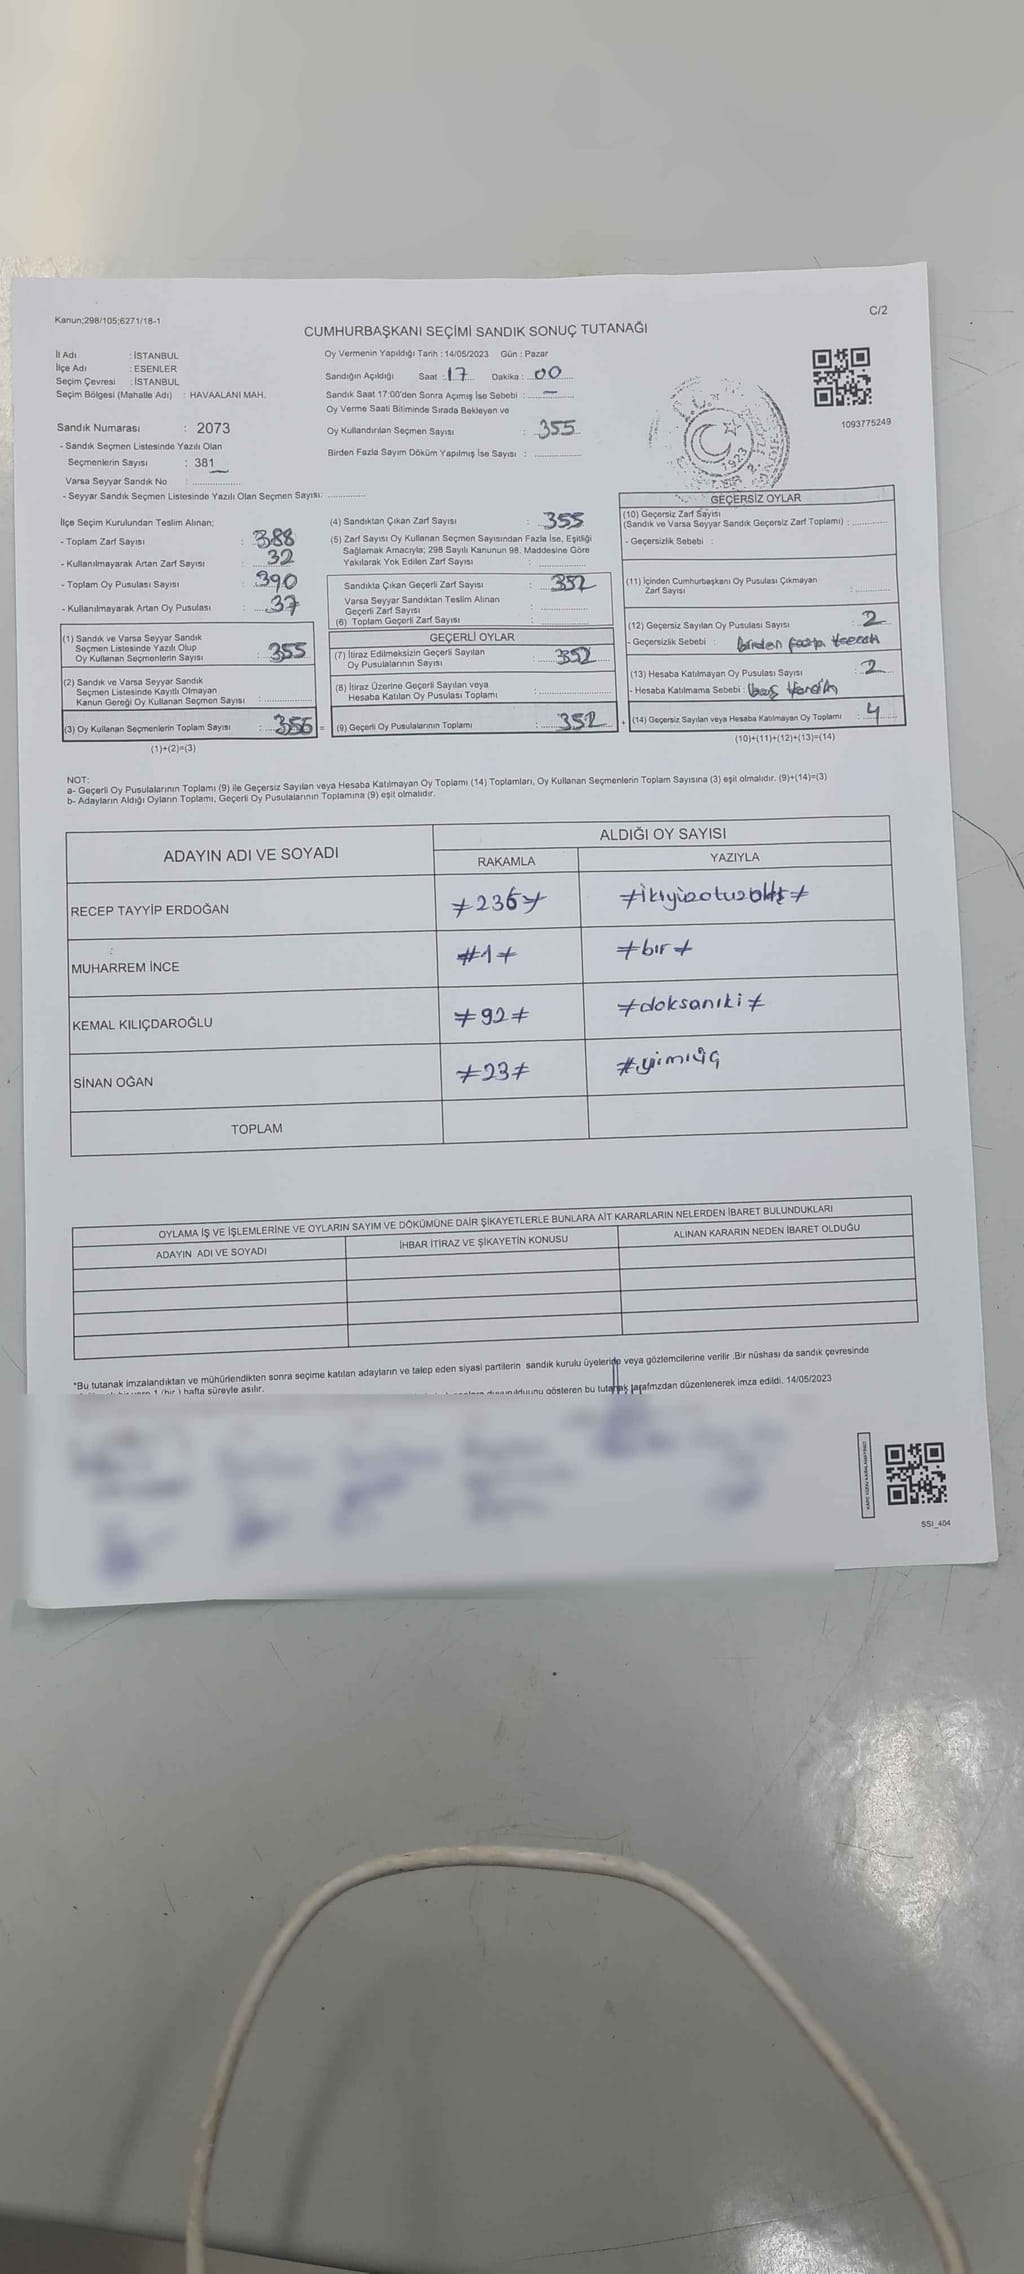 Kanun;298/105;6271/18-1
C/2
CUMHURBAŞKANI SEÇİMİ SANDIK SONUÇ TUTANAĞI
İl Adı : İSTANBUL
İlçe Adı : ESENLER
Seçim Çevresi : İSTANBUL
Seçim Bölgesi (Mahalle Adı) : HAVAALANI MAH.
Sandık Numarası : 2073
- Sandık Seçmen Listesinde Yazılı Olan
Seçmenlerin Sayısı : 381
Varsa Seyyar Sandık No :
- Seyyar Sandık Seçmen Listesinde Yazılı Olan Seçmen Sayısı:
Oy Vermenin Yapıldığı Tarih : 14/05/2023 Gün : Pazar
Sandığın Açıldığı Saat : 17 Dakika : 00
Sandık Saat 17:00'den Sonra Açımış İse Sebebi : -
Oy Verme Saati Bitiminde Sırada Bekleyen ve
Oy Kullandırılan Seçmen Sayısı : 355
Birden Fazla Sayım Döküm Yapılmış İse Sayısı :
1093775249
T.C.
1923
İlçe Seçim Kurulundan Teslim Alınan;
- Toplam Zarf Sayısı : 388
- Kullanılmayarak Artan Zarf Sayısı : 32
- Toplam Oy Pusulası Sayısı : 390
- Kullanılmayarak Artan Oy Pusulası : 37
(1) Sandık ve Varsa Seyyar Sandık
Seçmen Listesinde Yazılı Olup
Oy Kullanan Seçmenlerin Sayısı : 355
(2) Sandık ve Varsa Seyyar Sandık
Seçmen Listesinde Kayıtlı Olmayan
Kanun Gereği Oy Kullanan Seçmen Sayısı :
(3) Oy Kullanan Seçmenlerin Toplam Sayısı : 356 =
(1)+(2)=(3)
(4) Sandıktan Çıkan Zarf Sayısı : 355
(5) Zarf Sayısı Oy Kullanan Seçmen Sayısından Fazla İse, Eşitliği
Sağlamak Amacıyla; 298 Sayılı Kanunun 98. Maddesine Göre
Yakılarak Yok Edilen Zarf Sayısı :
Sandıkta Çıkan Geçerli Zarf Sayısı : 352
Varsa Seyyar Sandıktan Teslim Alınan
Geçerli Zarf Sayısı :
(6) Toplam Geçerli Zarf Sayısı :
GEÇERLİ OYLAR
(7) İtiraz Edilmeksizin Geçerli Sayılan
Oy Pusulalarının Sayısı : 352
(8) İtiraz Üzerine Geçerli Sayılan veya
Hesaba Katılan Oy Pusulası Toplamı :
(9) Geçerli Oy Pusulalarının Toplamı : 352 +
GEÇERSİZ OYLAR
(10) Geçersiz Zarf Sayısı
(Sandık ve Varsa Seyyar Sandık Geçersiz Zarf Toplamı) :
- Geçersizlik Sebebi :
(11) İçinden Cumhurbaşkanı Oy Pusulası Çıkmayan
Zarf Sayısı :
(12) Geçersiz Sayılan Oy Pusulası Sayısı : 2
- Geçersizlik Sebebi : birden fazla
(13) Hesaba Katılmayan Oy Pusulası Sayısı : 2
- Hesaba Katılmama Sebebi : boş
(14) Geçersiz Sayılan veya Hesaba Katılmayan Oy Toplamı : 4
(10)+(11)+(12)+(13)=(14)
NOT:
a- Geçerli Oy Pusulalarının Toplamı (9) ile Geçersiz Sayılan veya Hesaba Katılmayan Oy Toplamı (14) Toplamları, Oy Kullanan Seçmenlerin Toplam Sayısına (3) eşit olmalıdır. (9)+(14)=(3)
b- Adayların Aldığı Oyların Toplamı, Geçerli Oy Pusulalarının Toplamına (9) eşit olmalıdır.
ADAYIN ADI VE SOYADI ALDIĞI OY SAYISI
RAKAMLA YAZIYLA
RECEP TAYYİP ERDOĞAN ≠236≠ ≠ikiyüzotuzaltı≠
MUHARREM İNCE #1≠ ≠bir≠
KEMAL KILIÇDAROĞLU ≠92≠ ≠doksaniki≠
SİNAN OĞAN ≠23≠ #yirmiüç
TOPLAM
OYLAMA İŞ VE İŞLEMLERİNE VE OYLARIN SAYIM VE DÖKÜMÜNE DAİR ŞİKAYETLERLE BUNLARA AİT KARARLARIN NELERDEN İBARET BULUNDUKLARI
ADAYIN ADI VE SOYADI İHBAR İTİRAZ VE ŞİKAYETİN KONUSU ALINAN KARARIN NEDEN İBARET OLDUĞU
*Bu tutanak imzalandıktan ve mühürlendikten sonra seçime katılan adayların ve talep eden siyasi partilerin sandık kurulu üyelerine veya gözlemcilerine verilir .Bir nüshası da sandık çevresinde
1 (bir ) hafta süreyle asılır.
duyurulduğunu gösteren bu tutanak tarafmzdan düzenlenerek imza edildi. 14/05/2023
SSI_404